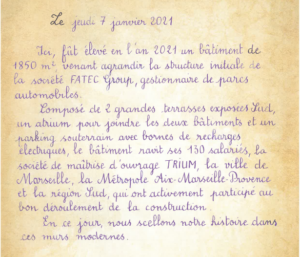 Le jeudi 7 janvier 2021
Ici, fût élevé en l'an 2021 un bâtiment de
1850 m² venant agrandir la structure initiale de
la société FATEC Group, gestionnaire de parcs
automobiles.
Composé de 2 grandes terrasses exposées Sud,
un atrium pour joindre les deux bâtiments et un
parking souterrain avec bornes de recharges
électriques, le bâtiment ravit ses 150 salariés, la
société de maîtrise d'ouvrage TRIUM, la ville de
Marseille, la Métropole Aix-Marseille-Provence
et la région Sud, qui ont activement participé au
bon déroulement de la construction.
En ce jour, nous scellons notre histoire dans
ces murs modernes.